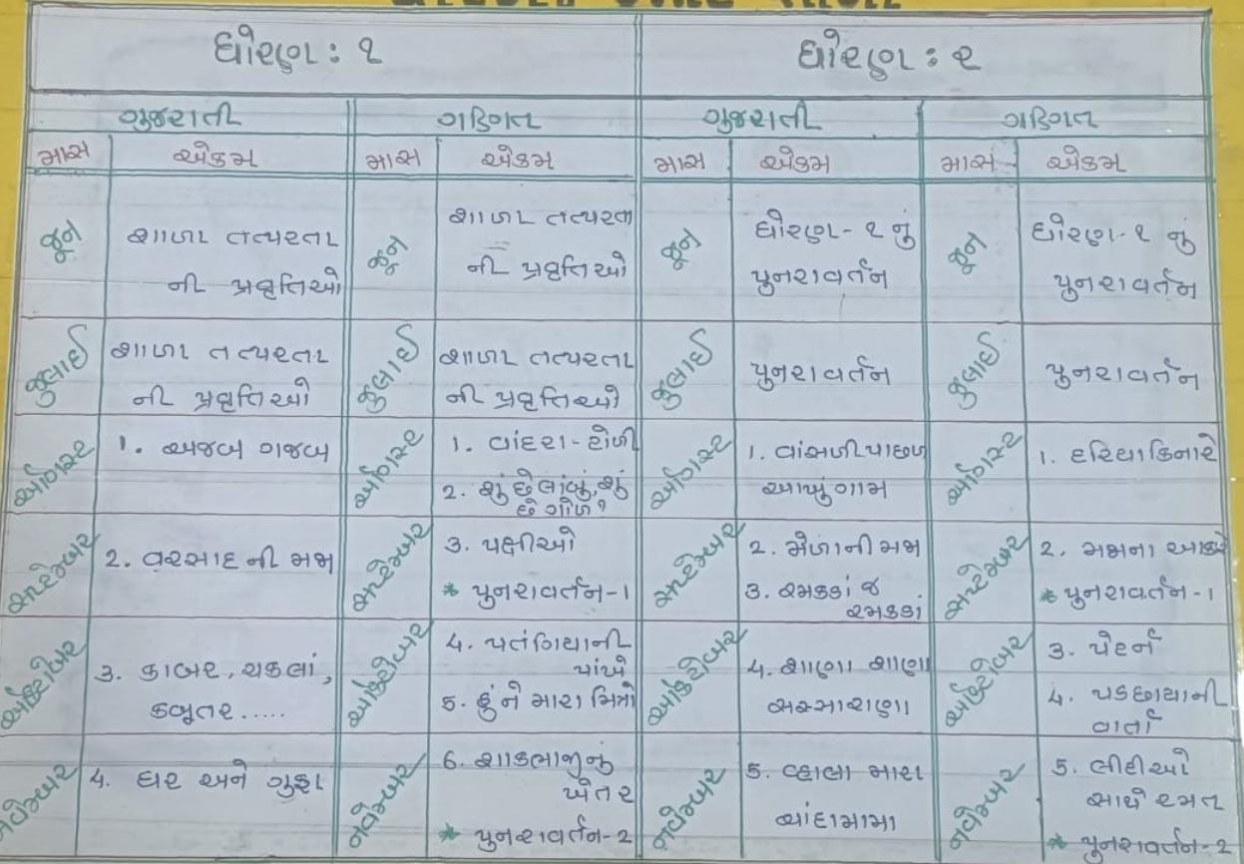 ધોરણ : ૧
ધોરણ : ૨
ગુજરાતી
ગણિત
ગુજરાતી
ગણિત
માસ
એકમ
માસ
એકમ
માસ
એકમ
માસ
એકમ
જૂન
શાળા તત્પરતા
ની પ્રવૃત્તિઓ
જૂન
શાળા તત્પરતા
ની પ્રવૃત્તિઓ
જૂન
ધોરણ - ૧ નું
પુનરાવર્તન
જૂન
ધોરણ - ૧ નું
પુનરાવર્તન
જુલાઈ
શાળા તત્પરતા
ની પ્રવૃત્તિઓ
જુલાઈ
શાળા તત્પરતા
ની પ્રવૃત્તિઓ
જુલાઈ
પુનરાવર્તન
જુલાઈ
પુનરાવર્તન
ઓગસ્ટ
1. અજબ ગજબ
ઓગસ્ટ
1. વાંદરા - ટોળી
2. શું છે લાંબું, શું
છે ગોળ ?
ઓગસ્ટ
1. વાંસળી પાછળ
આખું ગામ
ઓગસ્ટ
1. દરિયા કિનારે
સપ્ટેમ્બર
2. વરસાદ ની મજા
સપ્ટેમ્બર
3. પક્ષીઓ
* પુનરાવર્તન - 1
સપ્ટેમ્બર
2. મેળાની મજા
3. રમકડાં જ
રમકડાં
સપ્ટેમ્બર
2. મજાના આકારો
* પુનરાવર્તન - 1
ઓક્ટોબર
3. કાબર, ચકલાં,
કબૂતર.....
ઓક્ટોબર
4. પતંગિયાની
પાંખે
5. હું ને મારા મિત્રો
ઓક્ટોબર
4. શાણા શાણા
સસ્સારાણા
ઓક્ટોબર
3. પેટર્ન
4. પડછાયાની
વાર્તા
નવેમ્બર
4. ઘર અને ગુફા
નવેમ્બર
6. શાકભાજીનું
ખેતર
* પુનરાવર્તન - 2
નવેમ્બર
5. વ્હાલા મારા
ચાંદામામા
નવેમ્બર
5. લીટીઓ
સાથે રમત
* પુનરાવર્તન - 2